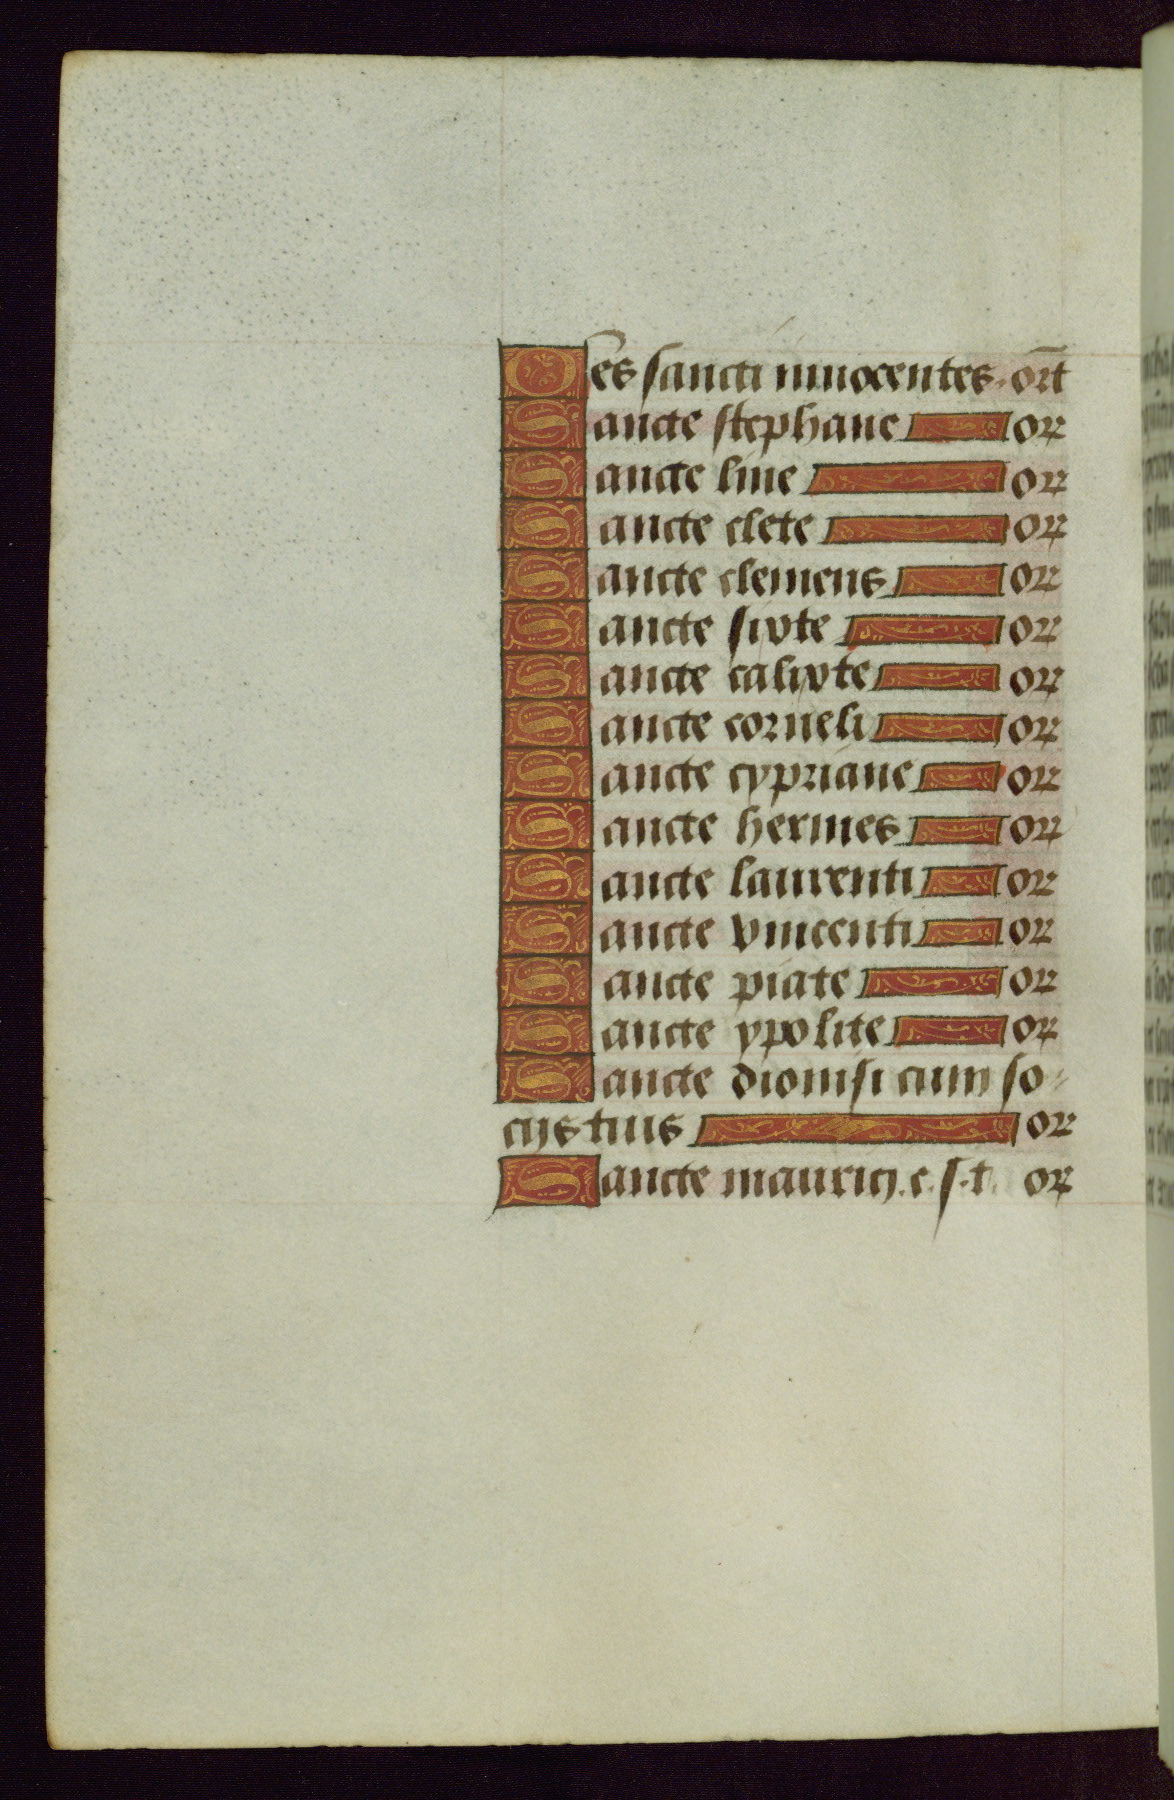 Oēs sancti innocentes. or̄t
Sancte stephane or
Sancte line or
Sancte clete or
Sancte clemens or
Sancte sixte or
Sancte calixte or
Sancte corneli or
Sancte cypriane or
Sancte hermes or
Sancte laurenti or
Sancte vincenti or
Sancte piate or
Sancte ypolite or
Sancte dionisi cum so-
cijs tuis or
Sancte maurici. c. s. t. or